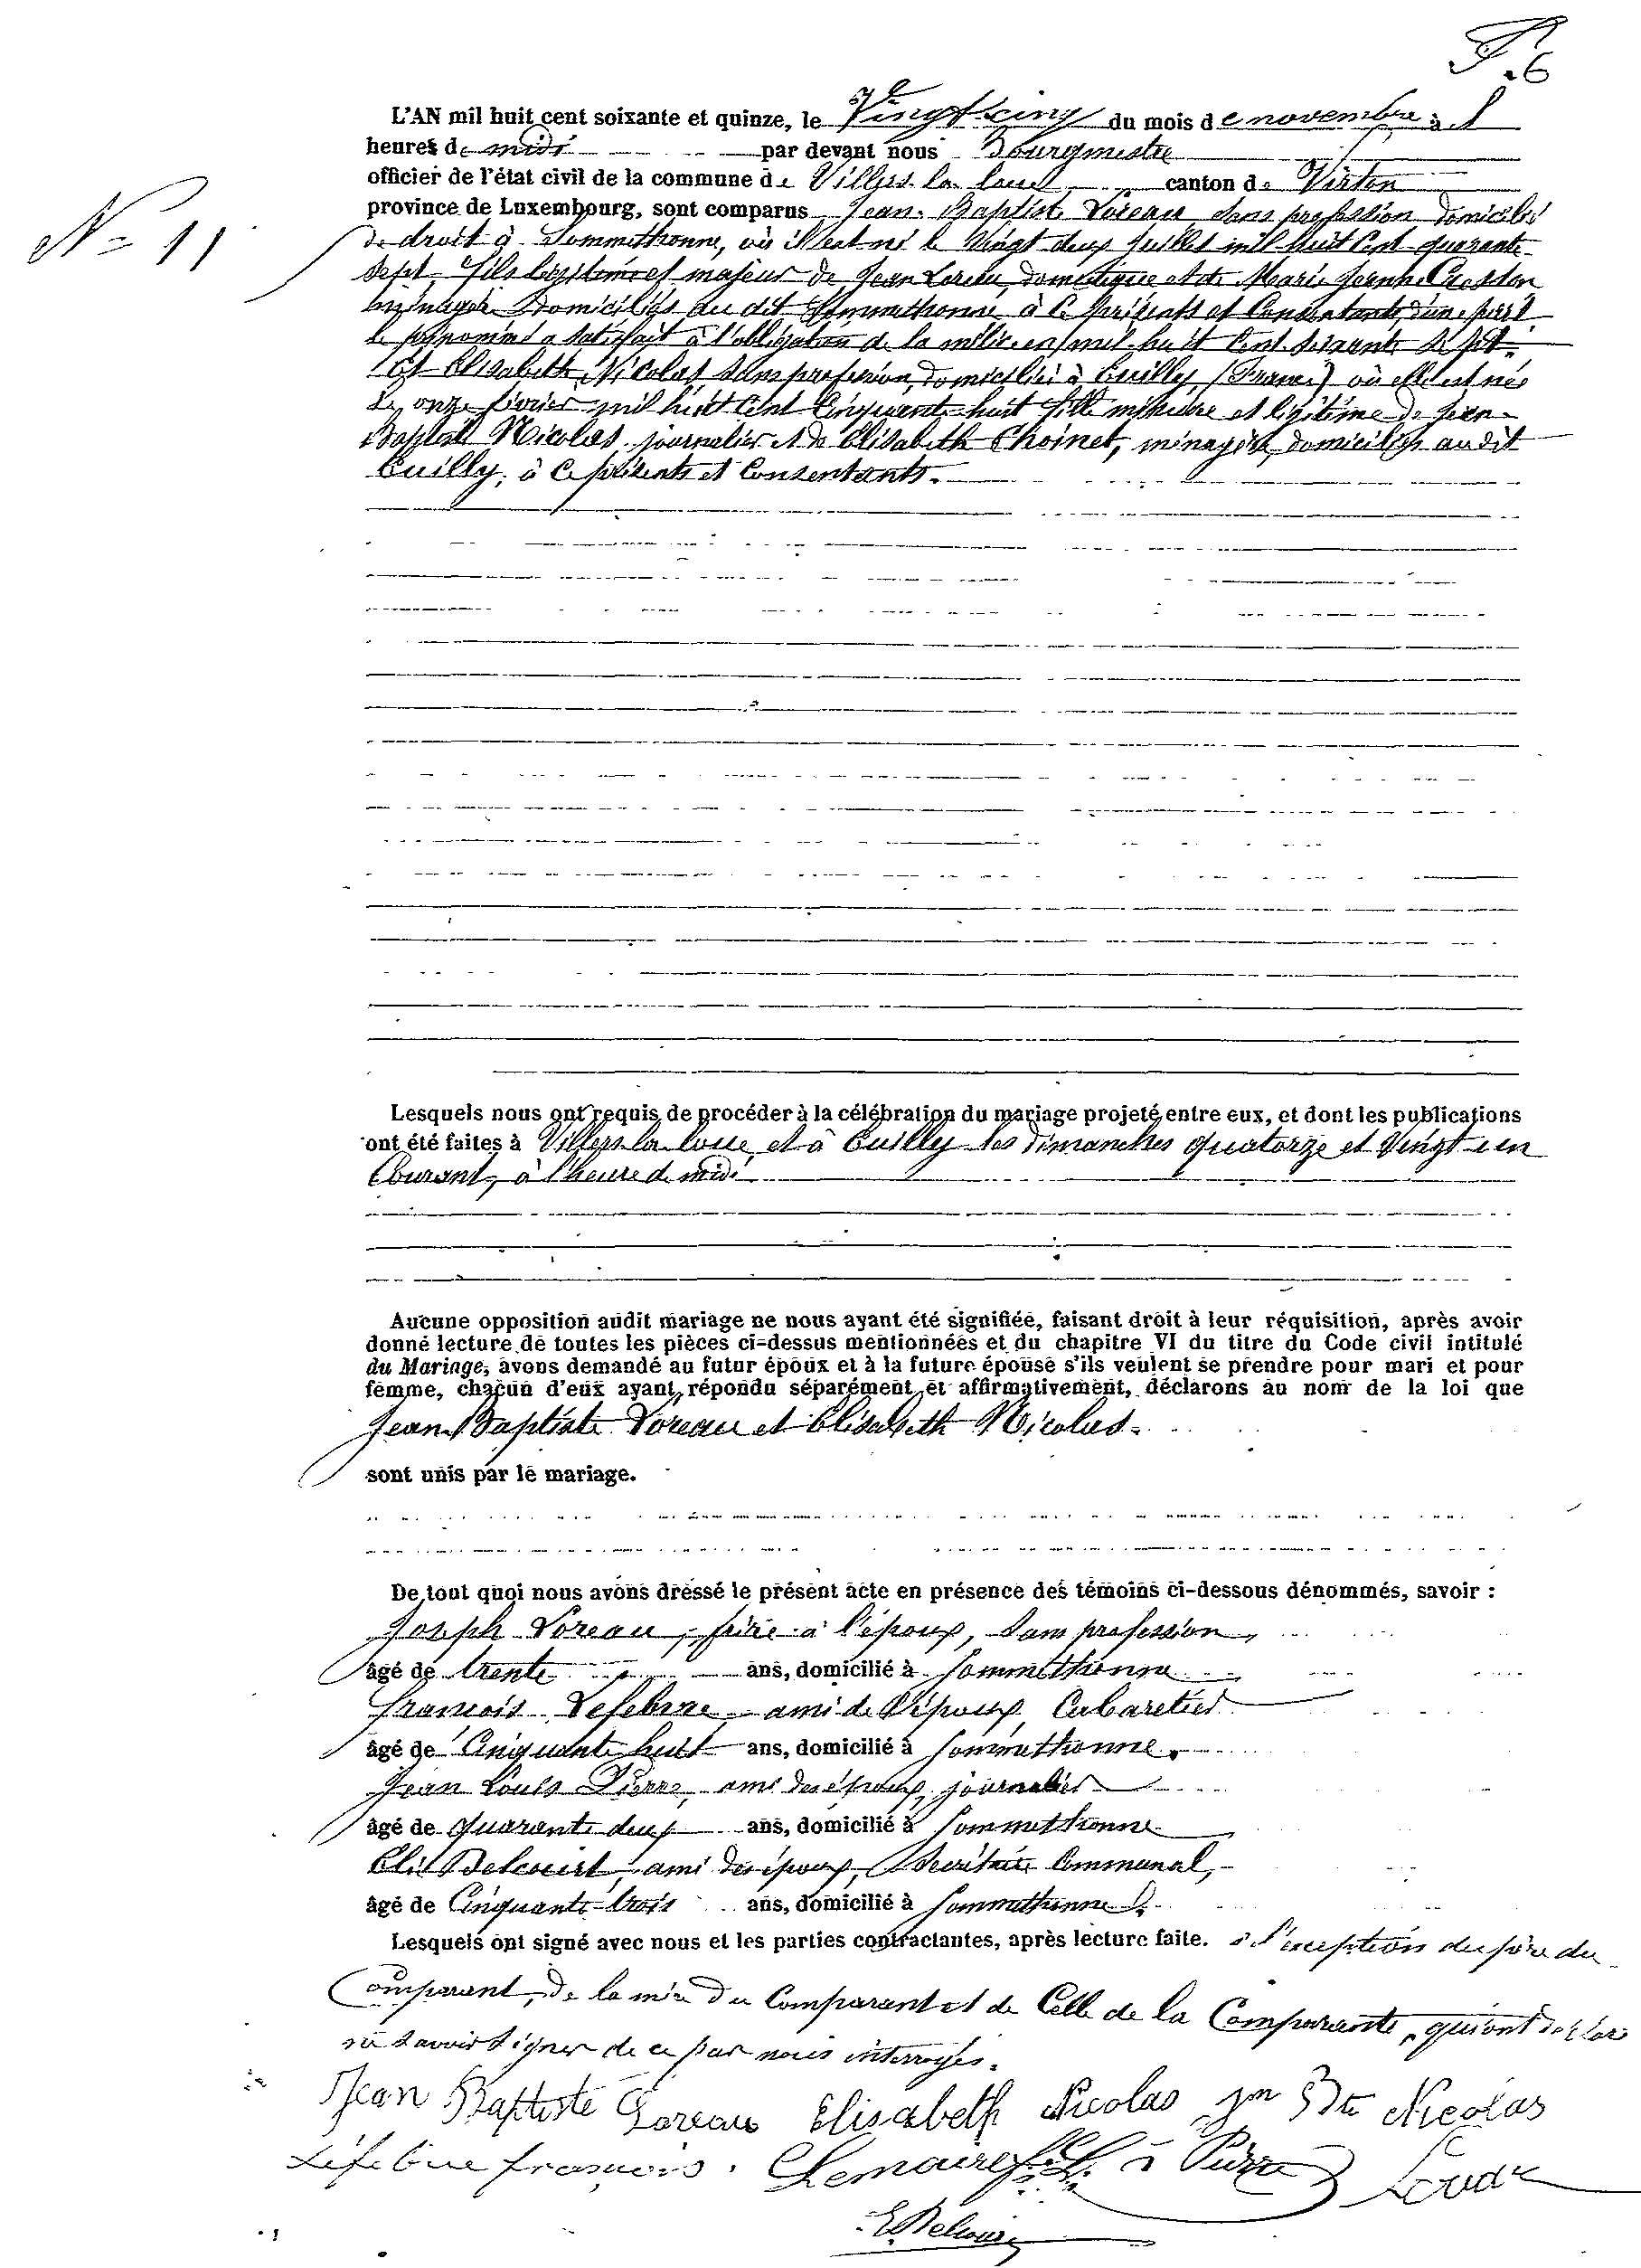 F. 6
N= 11
L'AN mil huit cent soixante et quinze, le Vingt-cinq du mois de novembre à
heures de midi par devant nous Bourgmestre
officier de l'état civil de la commune de Villers la loue canton de Virton
province de Luxembourg, sont comparus Jean-Baptiste Loreau sans profession domicilié
de droit à Sommethonne, où il est né le Vingt deux Juillet mil huit Cent quarante
Sept, fils légitime et majeur de Jean Loreau, domestique et de Marie Jeanne
ménagère domiciliés au dit Sommethonne à ce présents et Consentants d'une part
le prénommé a satisfait à l'obligation de la milice en mil huit Cent soixante et sept.
Et Elisabeth Nicolas, sans profession, domiciliée à Cuilly (France) où elle est née
le onze février mil huit Cent Cinquante huit fille mineure et légitime de Jean-
Baptiste Nicolas, journalier et de Elisabeth Choinet, ménagère, domiciliés au dit
Cuilly, à ce présents et Consentants.
Lesquels nous ont requis de procéder à la célébration du mariage projeté entre eux, et dont les publications
ont été faites à Villers la loue et à Cuilly les dimanches quatorze et Vingt un
Courant, à l'heure de midi
Aucune opposition audit mariage ne nous ayant été signifiée, faisant droit à leur réquisition, après avoir
donné lecture de toutes les pièces ci-dessus mentionnées et du chapitre VI du titre du Code civil intitulé
du Mariage, avons demandé au futur époux et à la future épouse s'ils veulent se prendre pour mari et pour
femme, chacun d'eux ayant répondu séparément et affirmativement, déclarons au nom de la loi que
Jean Baptiste Loreau et Elisabeth Nicolas.
sont unis par le mariage.
De tout quoi nous avons dressé le présent acte en présence des témoins ci-dessous dénommés, savoir :
Joseph Loreau, frère à l'époux, sans profession,
âgé de trente ans, domicilié à Sommethonne
François Lefebvre ami de l'époux, Cabaretier
âgé de Cinquante huit ans, domicilié à Sommethonne.
Jean Louis Pierre, ami des époux, journalier
âgé de quarante deux ans, domicilié à Sommethonne
Elie Belcourt, ami des époux, Secrétaire Communal,
âgé de Cinquante-trois ans, domicilié à Sommethonne.
Lesquels ont signé avec nous et les parties contractantes, après lecture faite. à l'exception du père du
Comparant, de la mère du Comparant et de Celle de la Comparante, qui ont déclaré
ne savoir signer de ce par nous interrogés.
Jean Baptiste Loreau Elisabeth Nicolas Jn Bte Nicolas
Lefebvre françois. Lemaire Pierre
E. Belcour